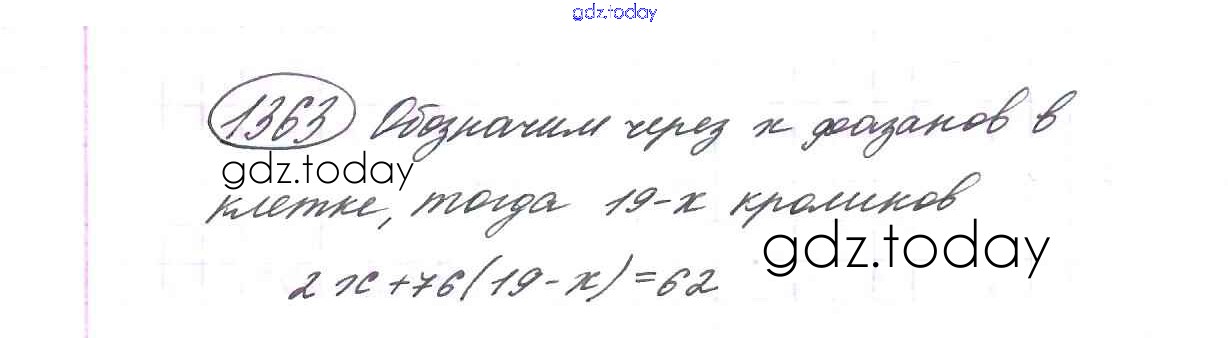 gdz.today
1363 Обозначим через x фазанов в
gdz.today
клетке, тогда 19-x кроликов
gdz.today
2x+76(19-x)=62